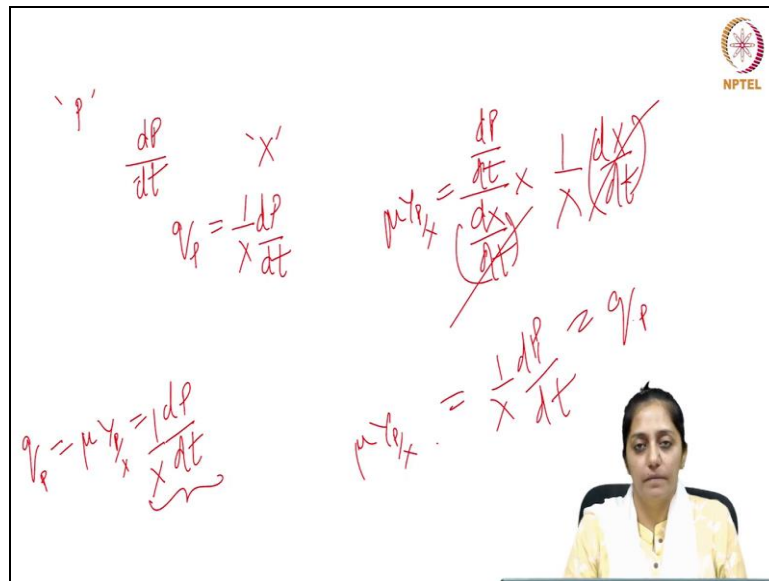 NPTEL
'P'
dP/dt 'X'
q_P = 1/X dP/dt
μ Y_P/X = (dP/dt)/(dx/dt) × 1/X (dx/dt)
μ Y_P/X = 1/X dP/dt = q_P
q_P = μ Y_P/X = 1/X dP/dt